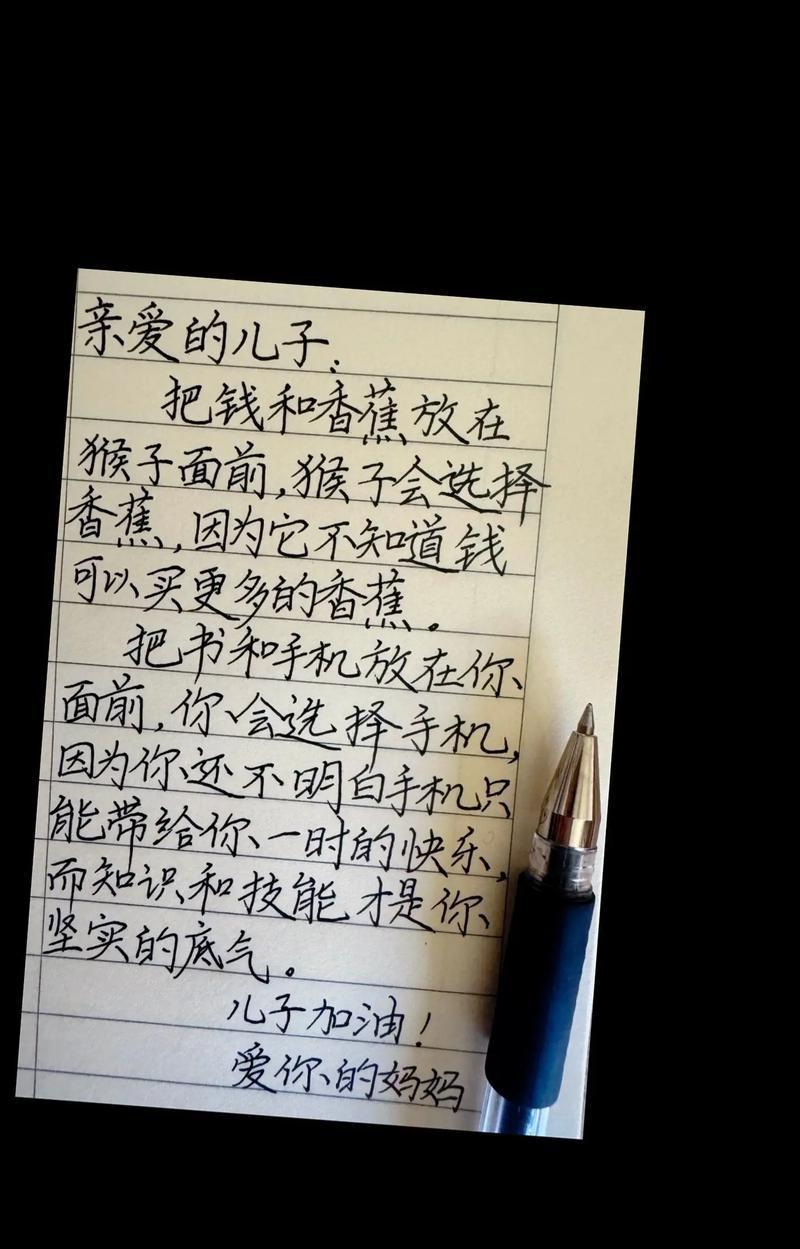 亲爱的儿子:
把钱和香蕉放在
猴子面前,猴子会选择
香蕉,因为它不知道钱
可以买更多的香蕉。
把书和手机放在你
面前,你会选择手机,
因为你还不明白手机只
能带给你一时的快乐,
而知识和技能才是你
坚实的底气。
儿子加油!
爱你的妈妈